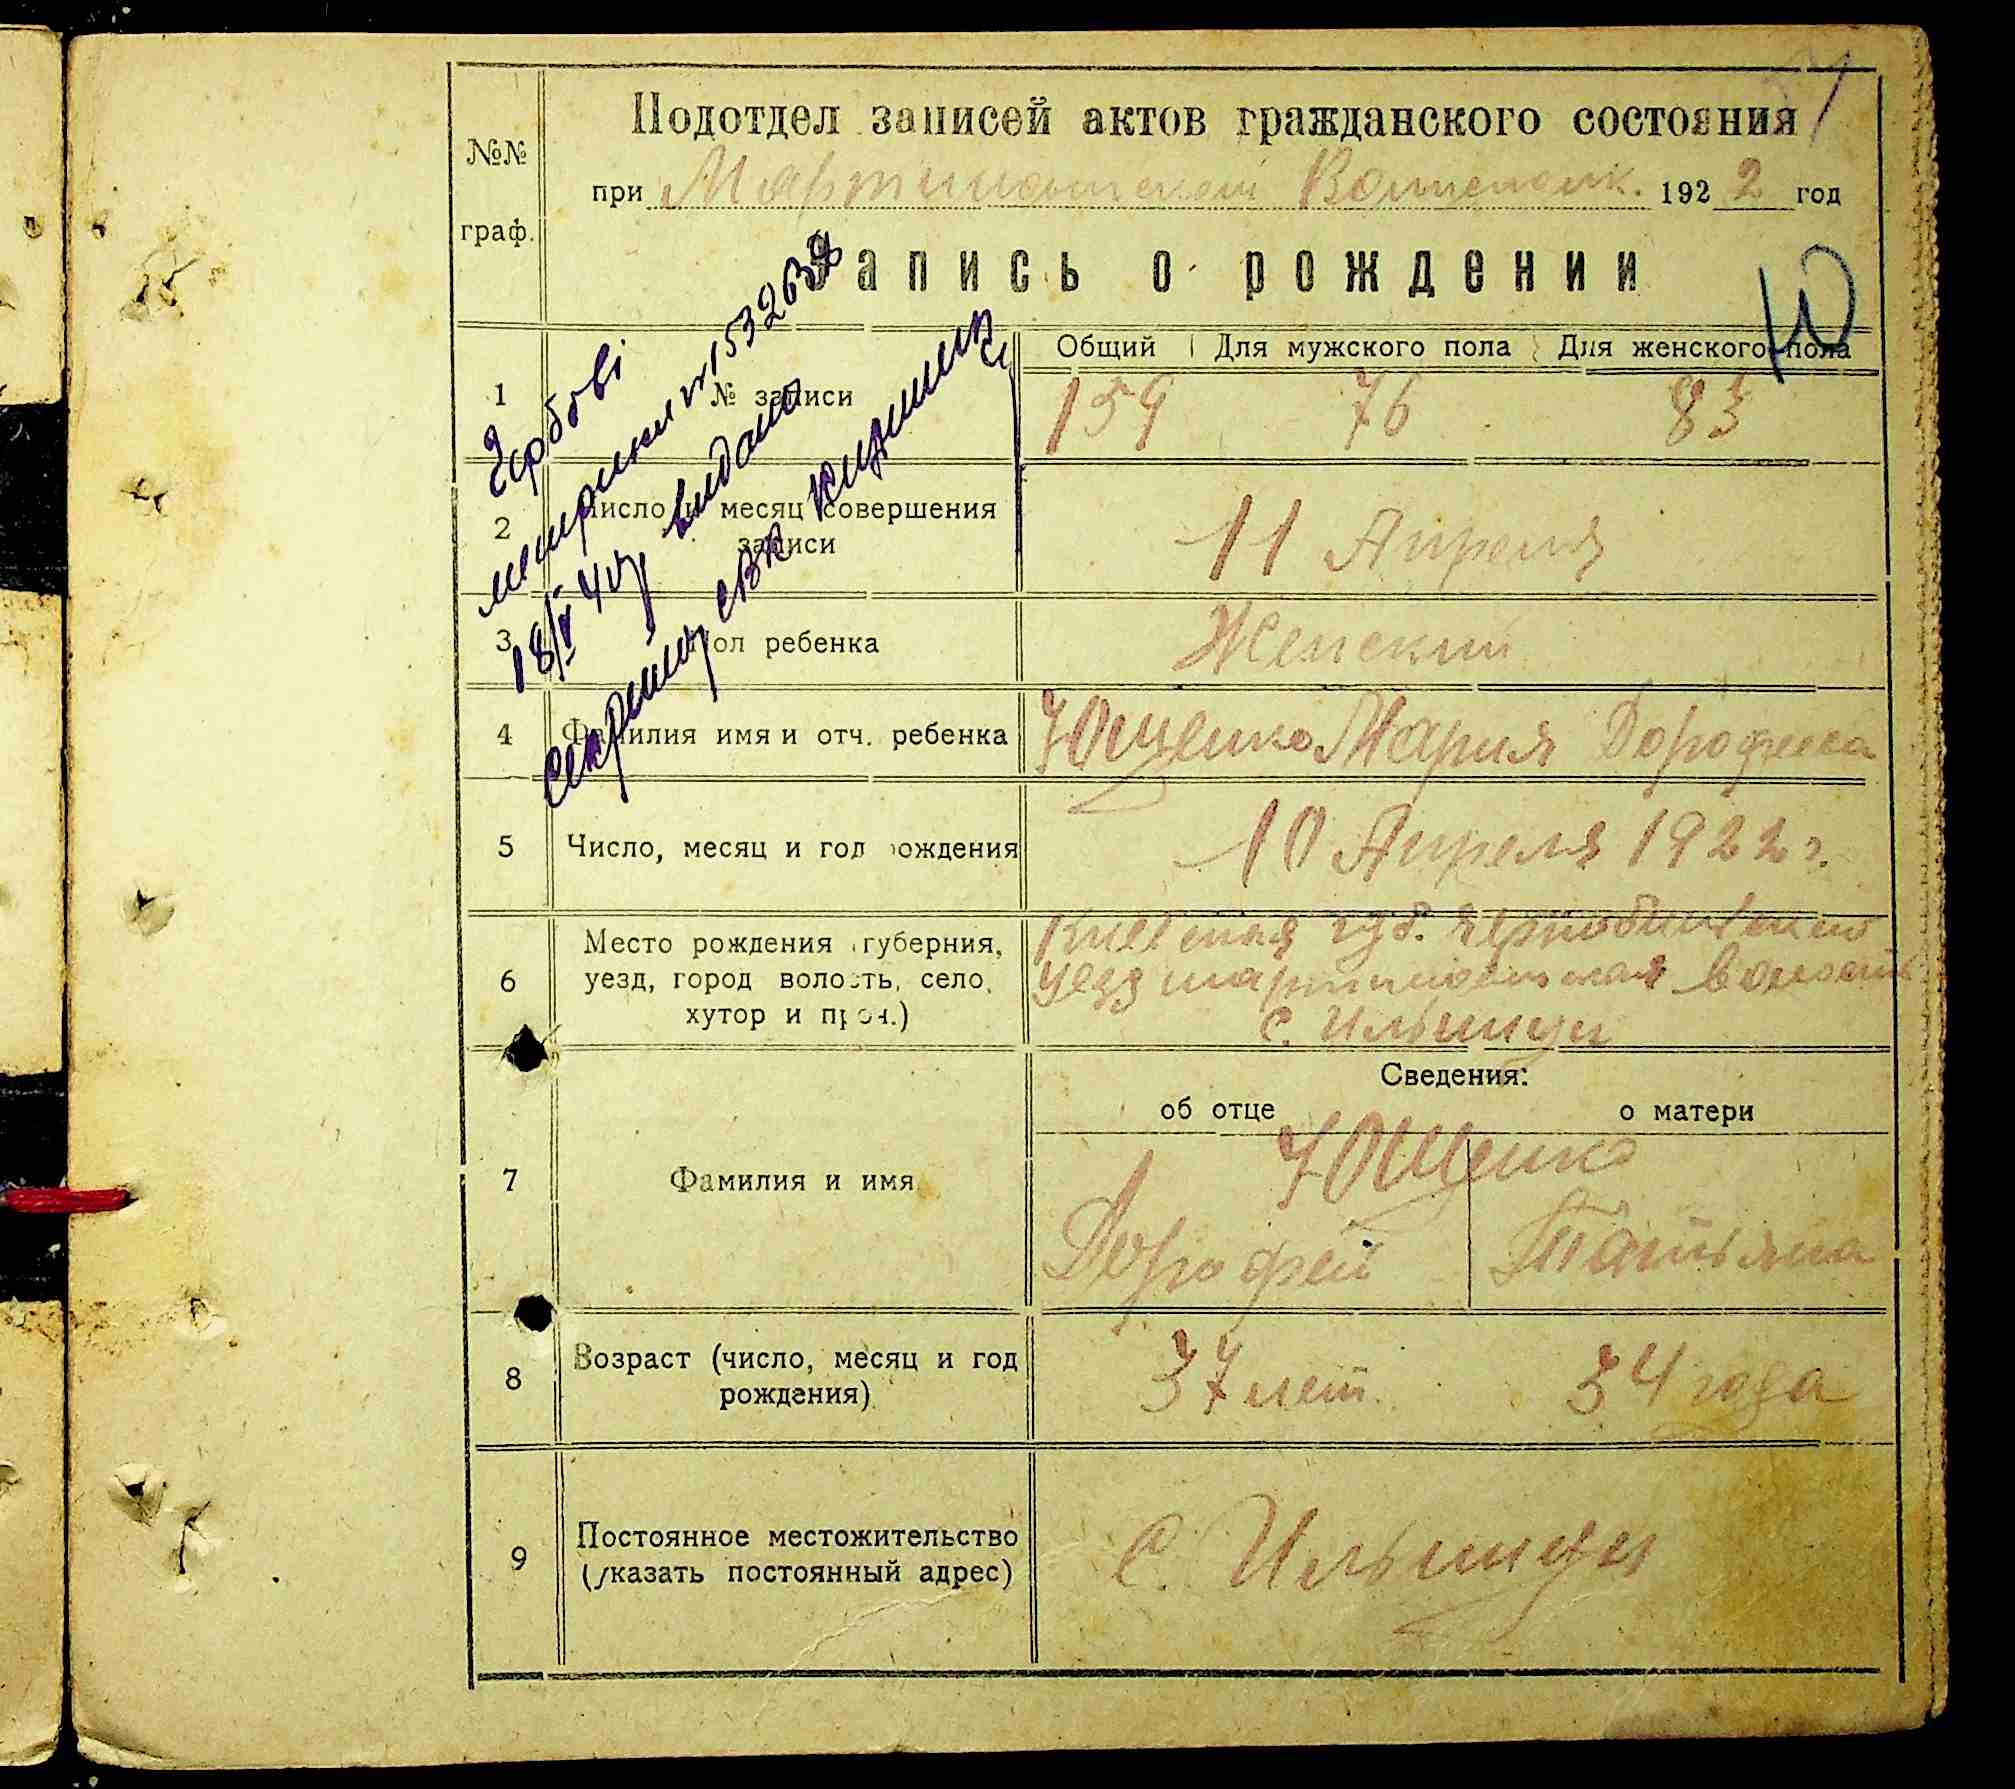 Подотдел записей актов гражданского состояния
при Мартиновском Волисполк. 1922 год
№№ граф.
Запись о рождении
Общий Для мужского пола Для женского пола
Ю
1 № записи 159 76 83
2 Число и месяц совершения записи 11 Апреля
3 Пол ребенка Женский
4 Фамилия имя и отч. ребенка Ющенко Мария
5 Число, месяц и год рождения 10 Апреля 1922 г.
6 Место рождения (губерния, уезд, город волость, село, хутор и проч.)
Киевская губ.
уезд волость
с. Ильинцы
Сведения:
об отце о матери
7 Фамилия и имя Ющенко
Дорофей Татьяна
8 Возраст (число, месяц и год рождения) 37 лет 34 года
9 Постоянное местожительство (указать постоянный адрес) с. Ильинцы
Гербові
метрики
18/V 40р видано